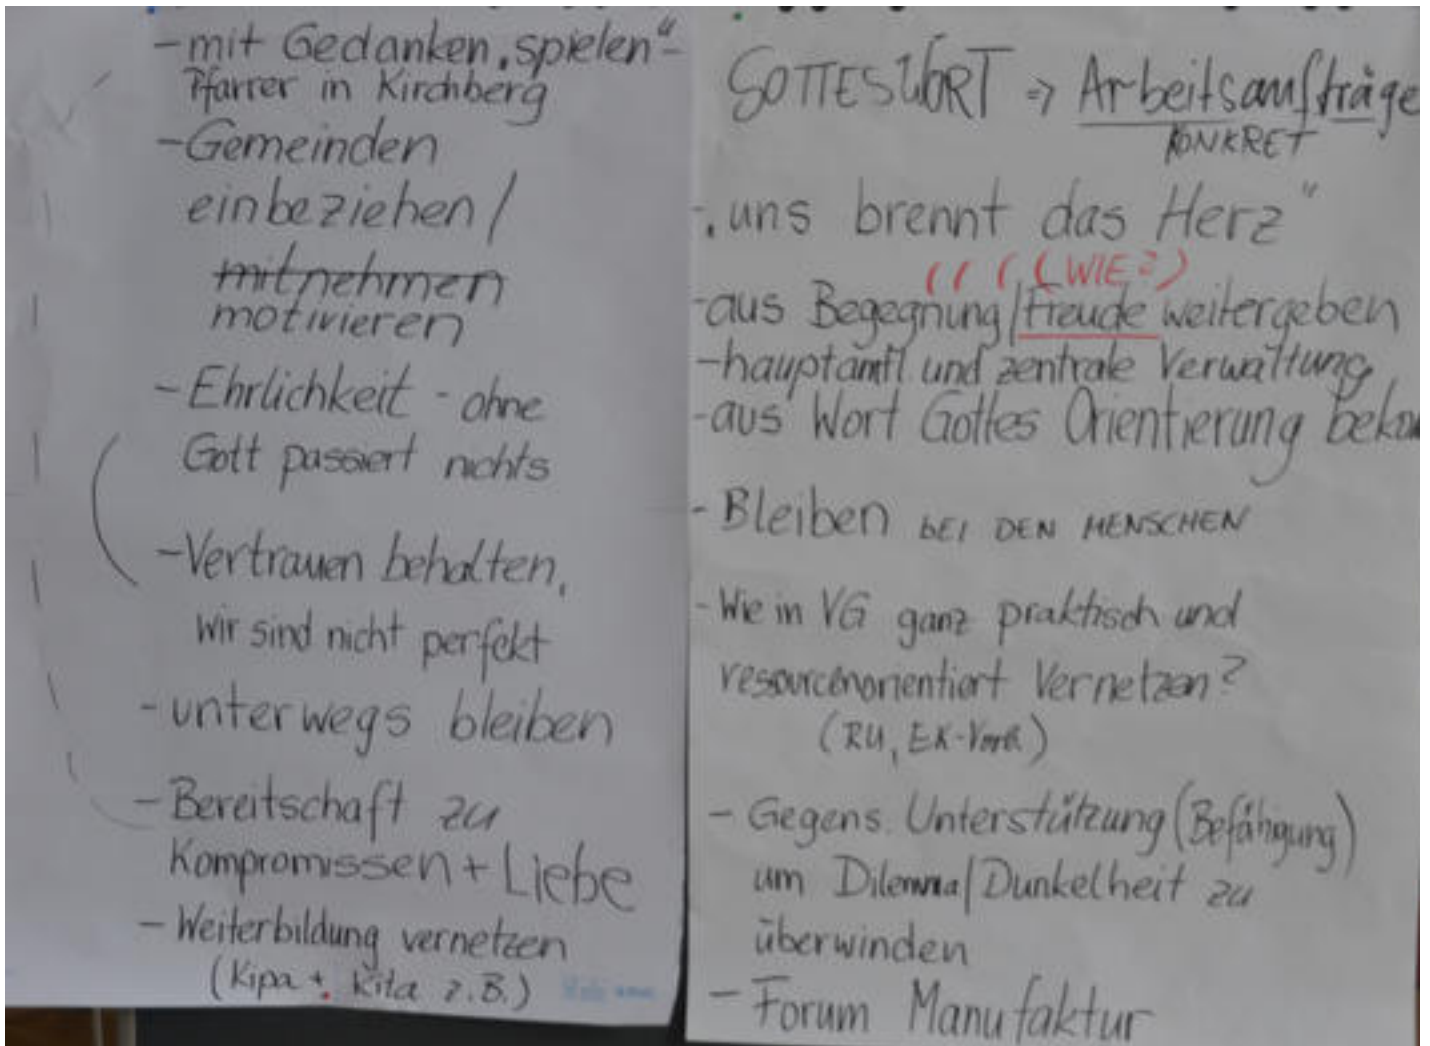 - mit Gedanken „spielen“ -
Pfarrer in Kirchberg
- Gemeinden
einbeziehen /
mitnehmen
motivieren
- Ehrlichkeit - ohne
Gott passiert nichts
- Vertrauen behalten,
wir sind nicht perfekt
- unterwegs bleiben
- Bereitschaft zu
Kompromissen + Liebe
- Weiterbildung vernetzen
(Kipa + Kita z.B.)
GOTTES WORT => Arbeitsaufträge
KONKRET
- „uns brennt das Herz“
( ( ( ( WIE? )
- aus Begegnung / Freude weitergeben
- hauptamtl und zentrale Verwaltung
- aus Wort Gottes Orientierung
- Bleiben BEI DEN MENSCHEN
- Wie in VG ganz praktisch und
resourcenorientiert Vernetzen?
(RU, EK-
- Gegens. Unterstützung (Befähigung)
um Dilemma / Dunkelheit zu
überwinden
- Forum Manufaktur